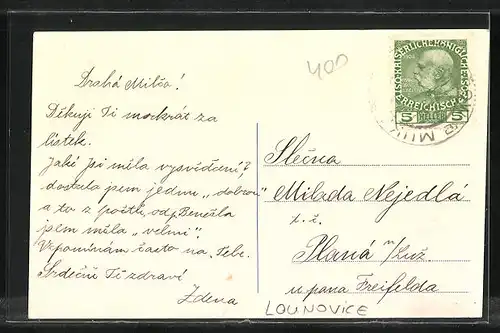 400
KAISERLICHE KÖNIGLICHE
ÖSTERREICHISCHE
5 HELLER 5
Drahá Milčo!
Děkuji Ti mockrát za
lístek.
Jaké jsi měla vysvědčení?
dostala jsem jednu „dobrou"
a to z počtů, od p. Beneša
jsem měla „velmi".
Vzpomínám často na Tebe.
Srdečně Tě zdraví
Zdena
Slečna
Milada Nejedlá
t. č.
Planá n/Luž.
u pana Freifelda
LOUNOVICE